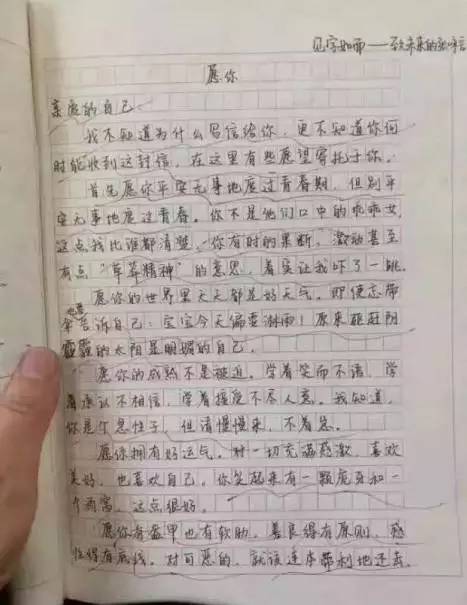 见字如面——致未来的
愿你
亲爱的自己
我不知道为什么写信给你，更不知道你何
时能收到这封信，在这里有些愿望寄托于你。
首先愿你平安无事地度过青春期，但别平
安无事地度过青春。你不是他们口中的乖乖女，
这点我比谁都清楚。你有时的果断，激动甚至
有点“草莽精神”的意思，着实让我吓了一跳。
愿你的世界里天天都是好天气。即使忘带
伞也要告诉自己：宝宝今天偏要淋雨！原来驱赶阴
霾的太阳是明媚的自己。
愿你的成熟不是被迫。学着笑而不语，学
着承认不相信，学着接受不尽人意。我知道，
你是个急性子，但请慢慢来，不着急。
愿你拥有好运气。对一切充满感激，喜欢
美好，也喜欢自己。你笑起来有一颗虎牙和一
个酒窝，这点很好。
愿你有盔甲也有软肋，善良得有原则，感
性得有底线。对可恶的，就该连本带利地还击